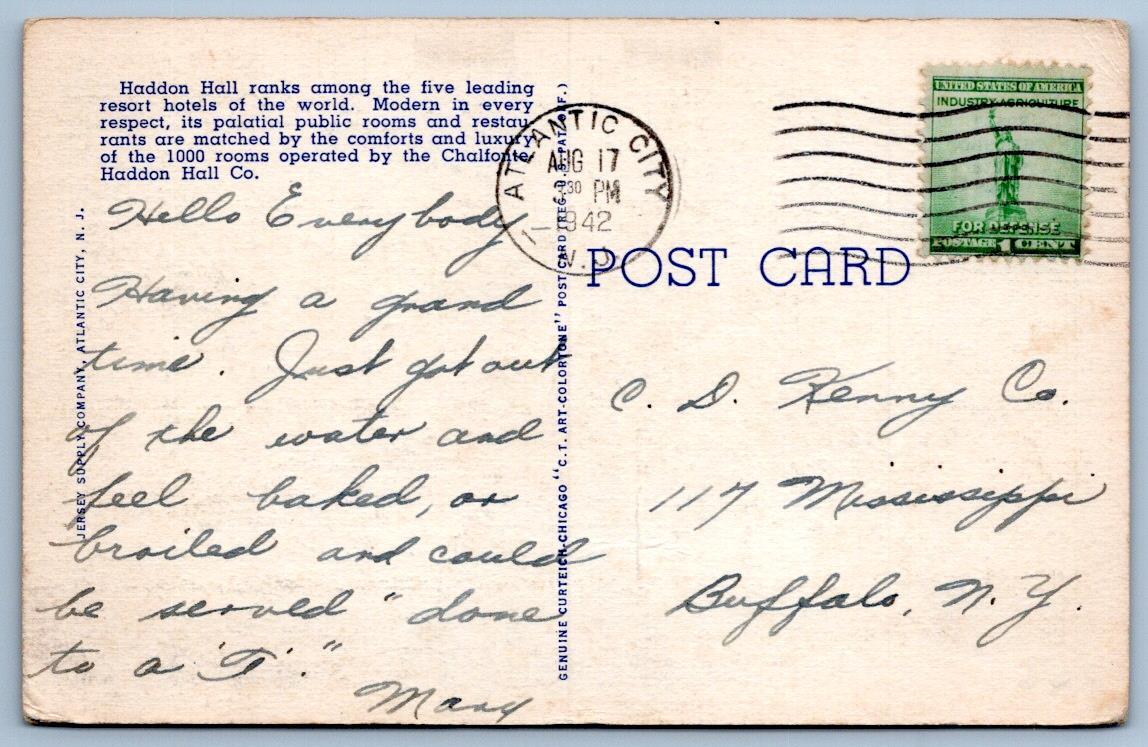 Haddon Hall ranks among the five leading
resort hotels of the world. Modern in every
respect, its palatial public rooms and restau-
rants are matched by the comforts and luxury
of the 1000 rooms operated by the Chalfonte
Haddon Hall Co.
Hello Everybody
Having a grand
time. Just got out
of the water and
feel baked, or
broiled and could
be served "done
to a 'T'."
Mary
JERSEY SUPPLY COMPANY, ATLANTIC CITY, N. J.
GENUINE CURTEICH-CHICAGO "C. T. ART-COLORTONE" POST CARD (REG. U. S. PAT. OFF.)
ATLANTIC CITY
AUG 17
30 PM
1942
N.J.
UNITED STATES OF AMERICA
INDUSTRY AGRICULTURE
FOR DEFENSE
POSTAGE 1 CENT
POST CARD
C. D. Kenny Co.
117 Mississippi
Buffalo, N. Y.